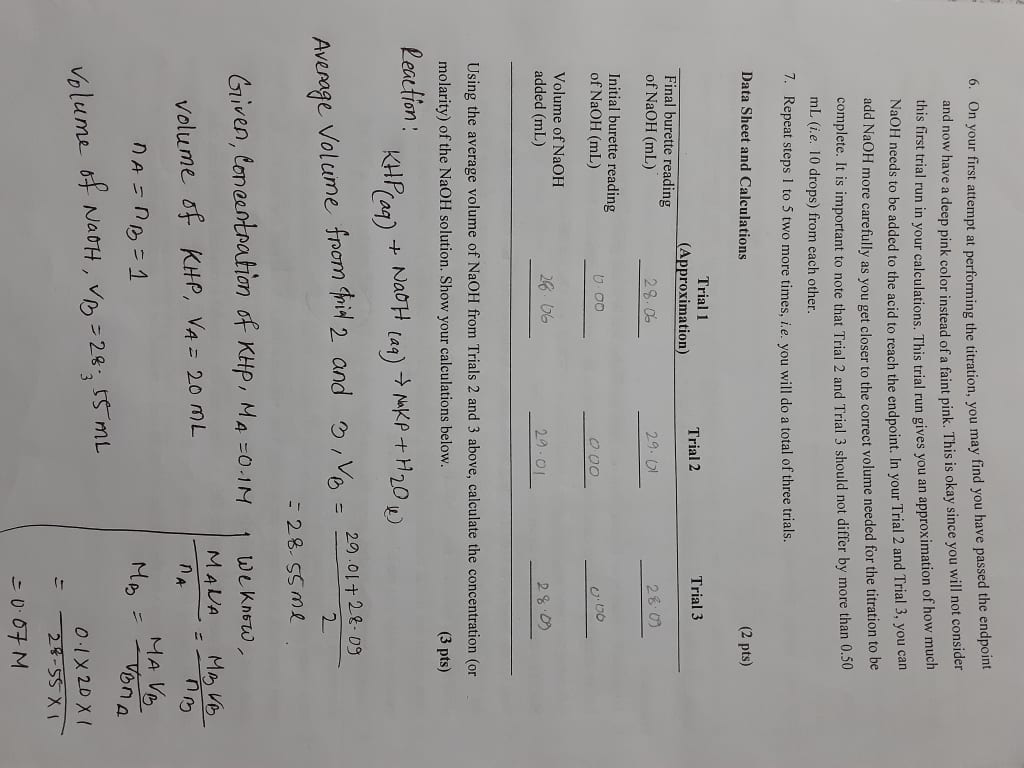 6. On your first attempt at performing the titration, you may find you have passed the endpoint
and now have a deep pink color instead of a faint pink. This is okay since you will not consider
this first trial run in your calculations. This trial run gives you an approximation of how much
NaOH needs to be added to the acid to reach the endpoint. In your Trial 2 and Trial 3, you can
add NaOH more carefully as you get closer to the correct volume needed for the titration to be
complete. It is important to note that Trial 2 and Trial 3 should not differ by more than 0.50
mL (i.e. 10 drops) from each other.
7. Repeat steps 1 to 5 two more times, i.e. you will do a total of three trials.
Data Sheet and Calculations (2 pts)
Trial 1
(Approximation) Trial 2 Trial 3
Final burette reading
of NaOH (mL) 28.06 29.01 28.09
Initial burette reading
of NaOH (mL) 0.00 0.00 0.00
Volume of NaOH
added (mL) 28.06 29.01 28.09
Using the average volume of NaOH from Trials 2 and 3 above, calculate the concentration (or
molarity) of the NaOH solution. Show your calculations below. (3 pts)
Reaction:
KHP(aq) + NaOH (aq) → NaKP + H2O (l)
Average Volume from trial 2 and 3, VB = 29.01 + 28.09
2
= 28.55 ml.
Given, Concentration of KHP, MA = 0.1M
volume of KHP, VA = 20 mL
nA = nB = 1
Volume of NaOH, VB = 28.55 mL
3
We know,
MAVA / nA = MBVB / nB
MB = MA VB / VB nA
= 0.1 X 20 X 1 / 28.55 X 1
= 0.07 M